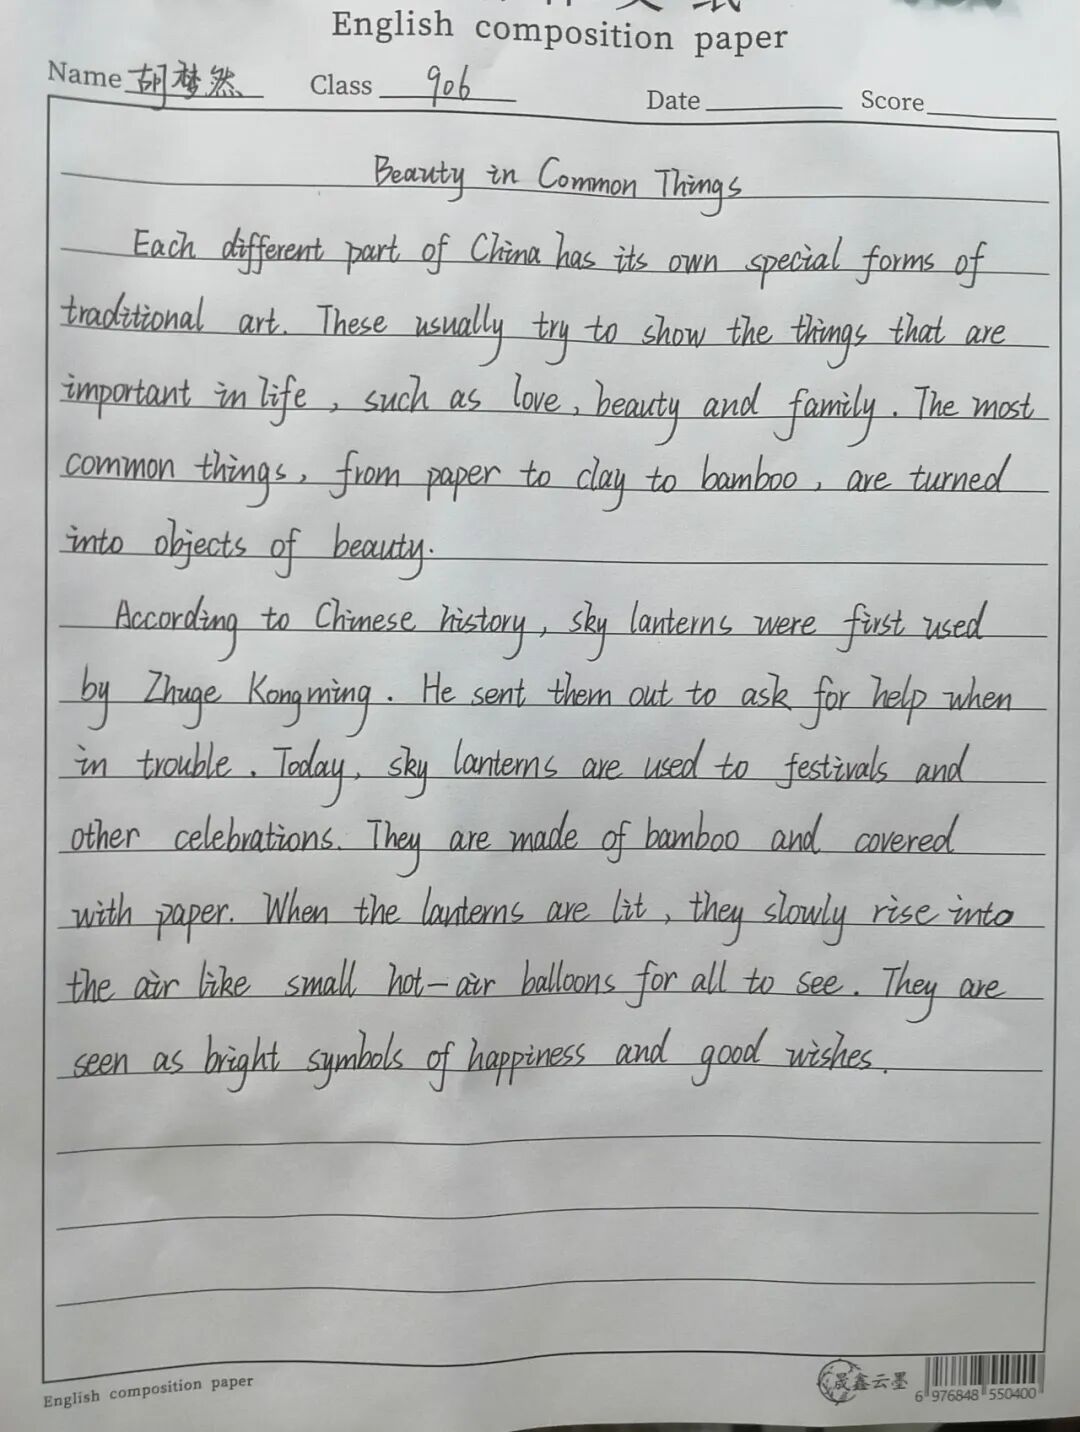 English composition paper
Name 胡梦然 Class 906 Date Score
Beauty in Common Things
Each different part of China has its own special forms of
traditional art. These usually try to show the things that are
important in life, such as love, beauty and family. The most
common things, from paper to clay to bamboo, are turned
into objects of beauty.
According to Chinese history, sky lanterns were first used
by Zhuge Kongming. He sent them out to ask for help when
in trouble. Today, sky lanterns are used to festivals and
other celebrations. They are made of bamboo and covered
with paper. When the lanterns are lit, they slowly rise into
the air like small hot-air balloons for all to see. They are
seen as bright symbols of happiness and good wishes.
English composition paper
晟鑫云墨
6 976848 550400